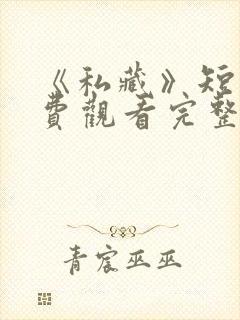 《私藏》短
費觀看完整
青宸巫巫